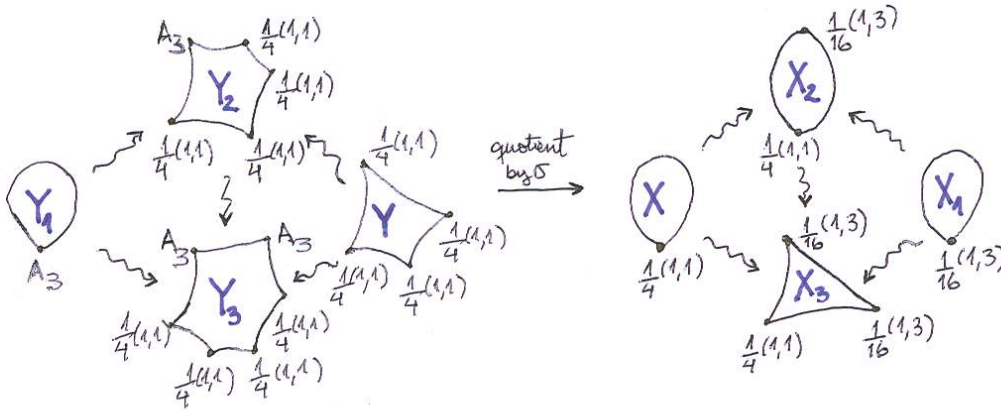 A₃
1/4(1,1)
1/4(1,1)
Y₂
1/4(1,1)
1/4(1,1)
Y₁
A₃
A₃
A₃
Y₃
1/4(1,1)
1/4(1,1)
1/4(1,1)
1/4(1,1)
1/4(1,1)
Y
1/4(1,1)
1/4(1,1)
1/4(1,1)
quotient
by σ
1/16(1,3)
X₂
1/4(1,1)
X
1/4(1,1)
X₁
1/16(1,3)
1/16(1,3)
X₃
1/4(1,1)
1/16(1,3)